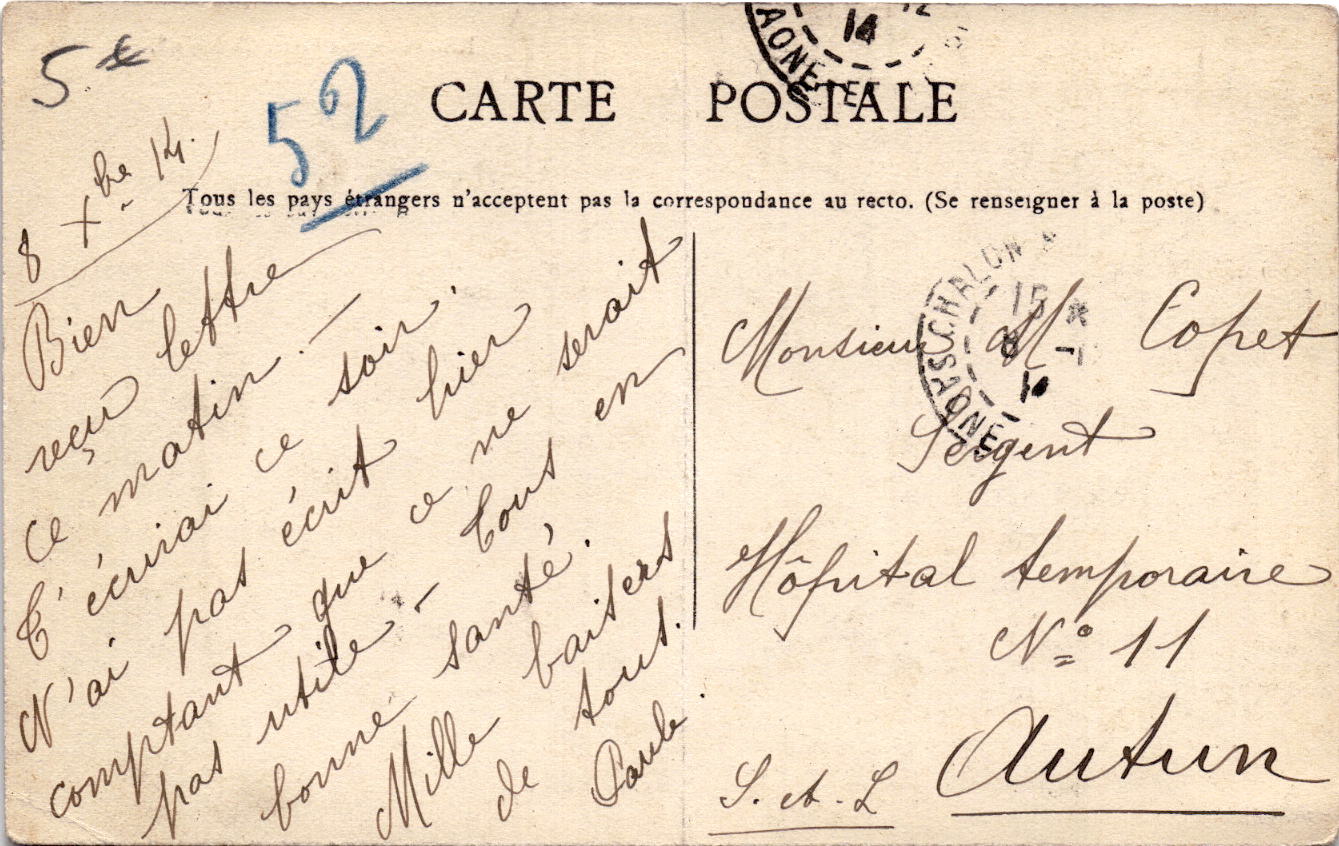 5
52
CARTE POSTALE
Tous les pays étrangers n'acceptent pas la correspondance au recto. (Se renseigner à la poste)
8 Xbre 14.
Bien
reçu lettre
ce matin.
T'écrirai ce soir.
N'ai pas écrit hier
comptant que ce ne serait
pas utile - Tous en
bonne santé.
Mille baisers
de tous.
Paule.
AONE-E
12
14
CHALON S
SAONE
15 *
8 -1
14
Monsieur M Copet
Sergent
Hôpital temporaire
N° 11
Autun
S. et. L